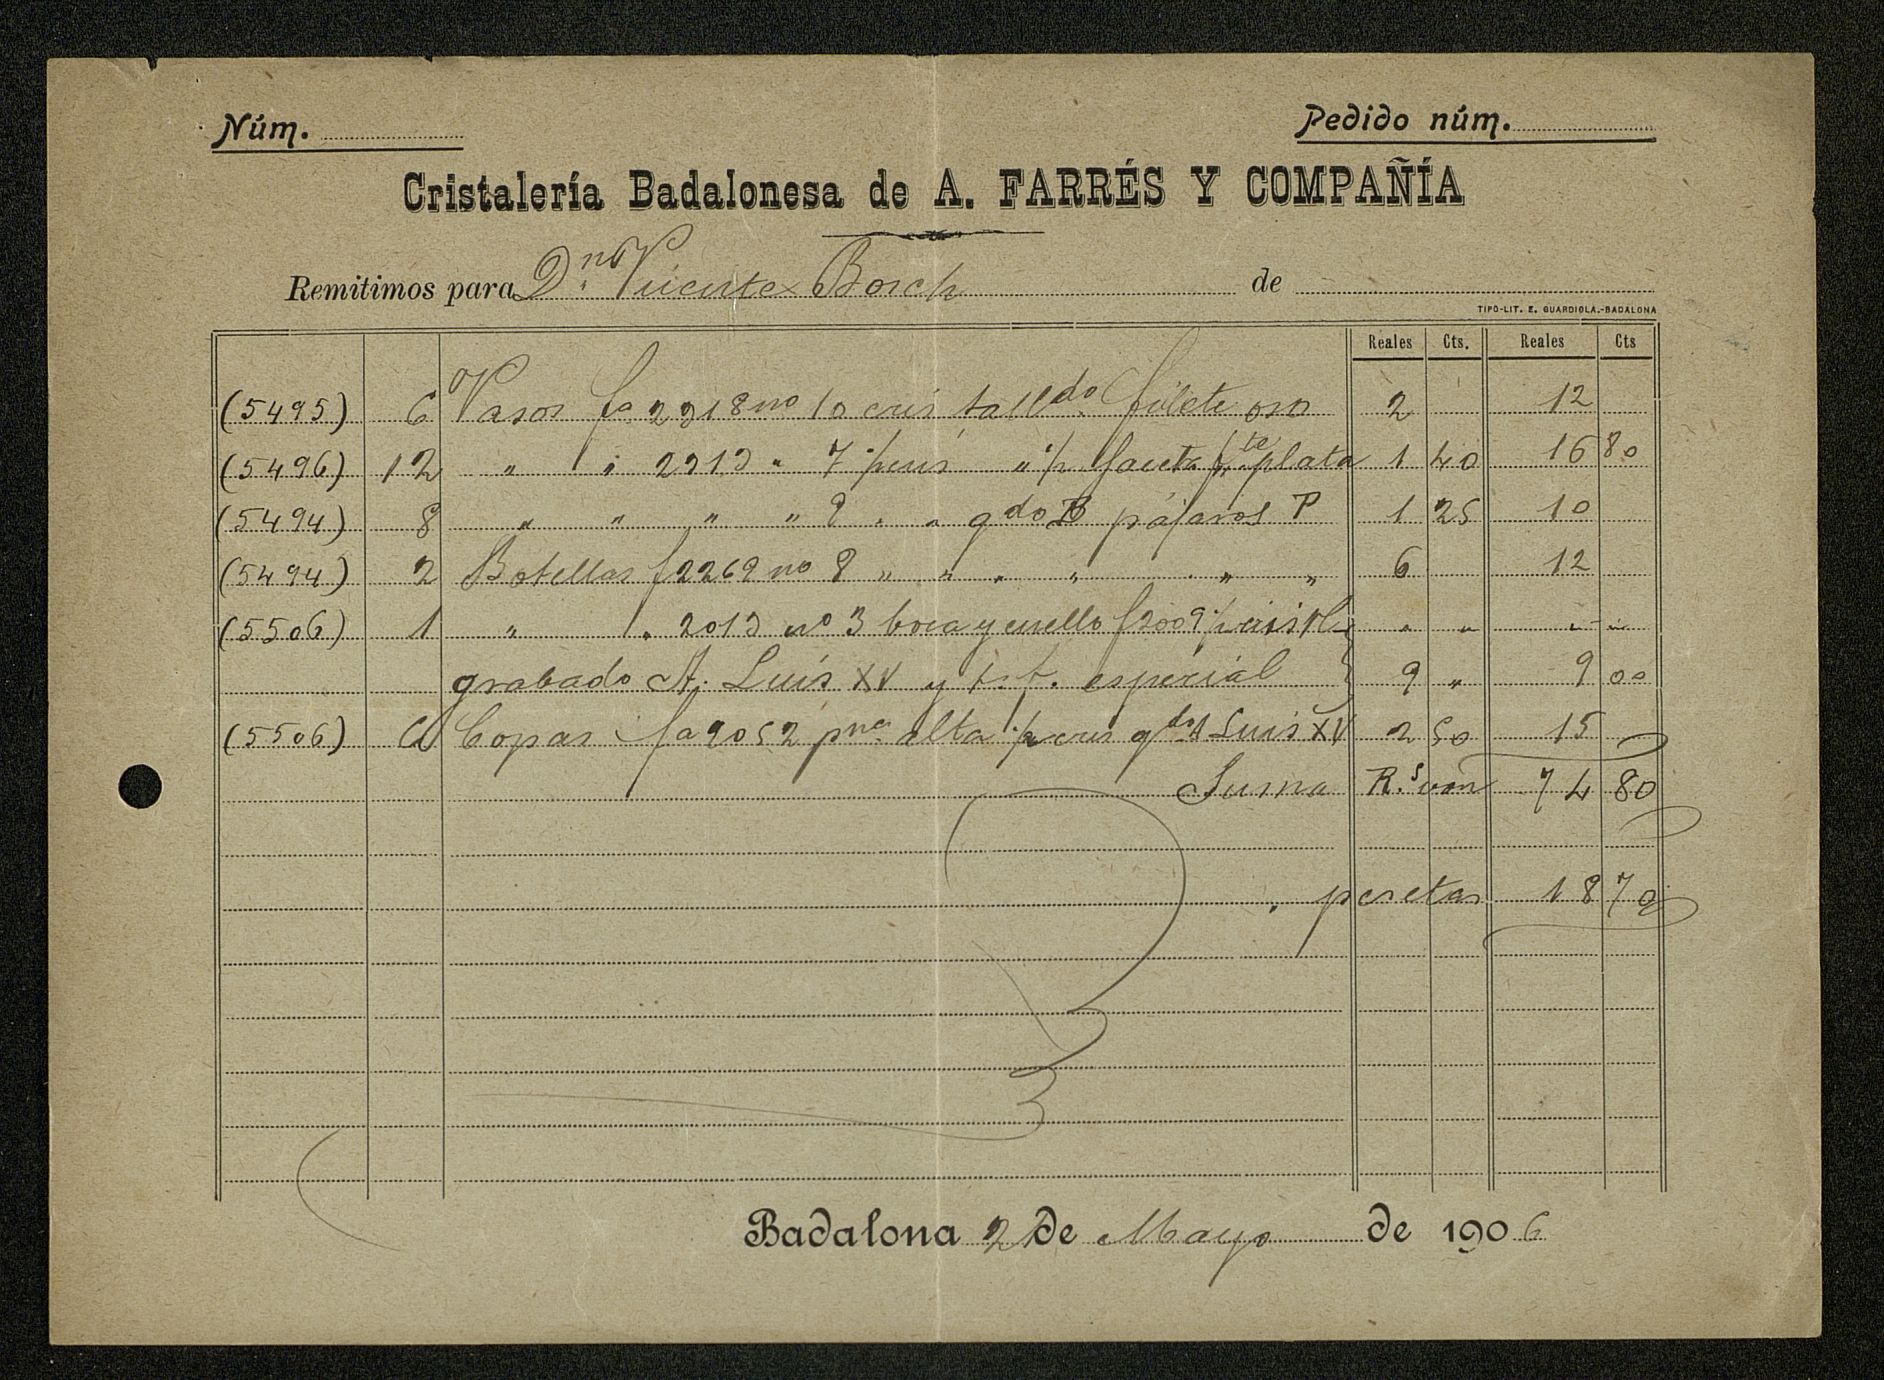 Núm.
Pedido núm.
Cristalería Badalonesa de A. FARRÉS Y COMPAÑÍA
Remitimos para Dn. Vicente Bosch de
TIPO-LIT. E. GUARDIOLA.-BADALONA
Reales Cts. Reales Cts
(5495) 6 Vasos fa 2218 no 10 cris talldo filete oro 2 12
(5496) 12 " " 2213 " 7 " faceta plata 1 40 16 80
(5494) 8 " " " " 2 " " gdo B pájaros P 1 25 10
(5494) 2 Botellas f 2269 no 2 " " " " " " 6 12
(5506) 1 " " 2013 no 3 boca y cuello f 2009 " " " "
grabado A. Luís XV y especial 9 " 9 00
(5506) 6 Copas fa 2052 alta gdo A Luis XV 2 50 15
Suma R.s von 74 80
" pesetas 18 70
Badalona 21 de Mayo de 1906